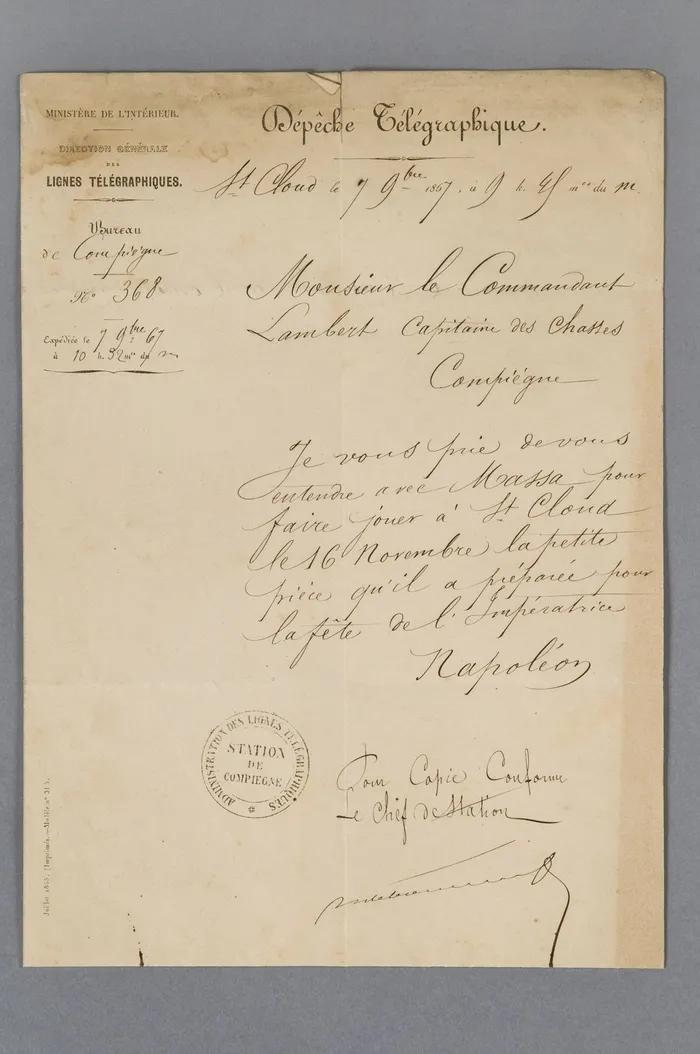 MINISTÈRE DE L'INTÉRIEUR.
DIRECTION GÉNÉRALE
DES
LIGNES TÉLÉGRAPHIQUES.
Bureau
de Compiègne
N° 368
Expédiée le 7 9bre 67
à 10 h. 52 mes du m
Dépêche Télégraphique.
St Cloud le 7 9bre 1867, à 9 h. 45 mes du m.
Monsieur le Commandant
Lambert Capitaine des Chasses
Compiègne
Je vous prie de vous
entendre avec Massa pour
faire jouer à St Cloud
le 16 Novembre la petite
pièce qu'il a préparée pour
la fête de l'Impératrice
Napoléon
ADMINISTRATION DES LIGNES TÉLÉGRAPHIQUES
STATION
DE
COMPIEGNE
Pour Copie Conforme
Le Chef de Station